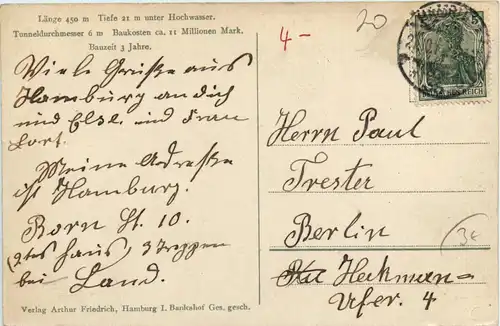 Länge 450 m Tiefe 21 m unter Hochwasser.
Tunneldurchmesser 6 m Baukosten ca. 11 Millionen Mark.
Bauzeit 3 Jahre.
Viele Grüße aus
Hamburg an dich
und Else und Frau
Meine Adresse
ist Hamburg.
Born St. 10.
(2tes Haus, 3 Treppen
bei Land.
Verlag Arthur Friedrich, Hamburg I. Bankshof Ges. gesch.
4 -
20
DEUTSCHES REICH
Herrn Paul
Trester
Berlin
Heckman=
Ufer. 4
3€